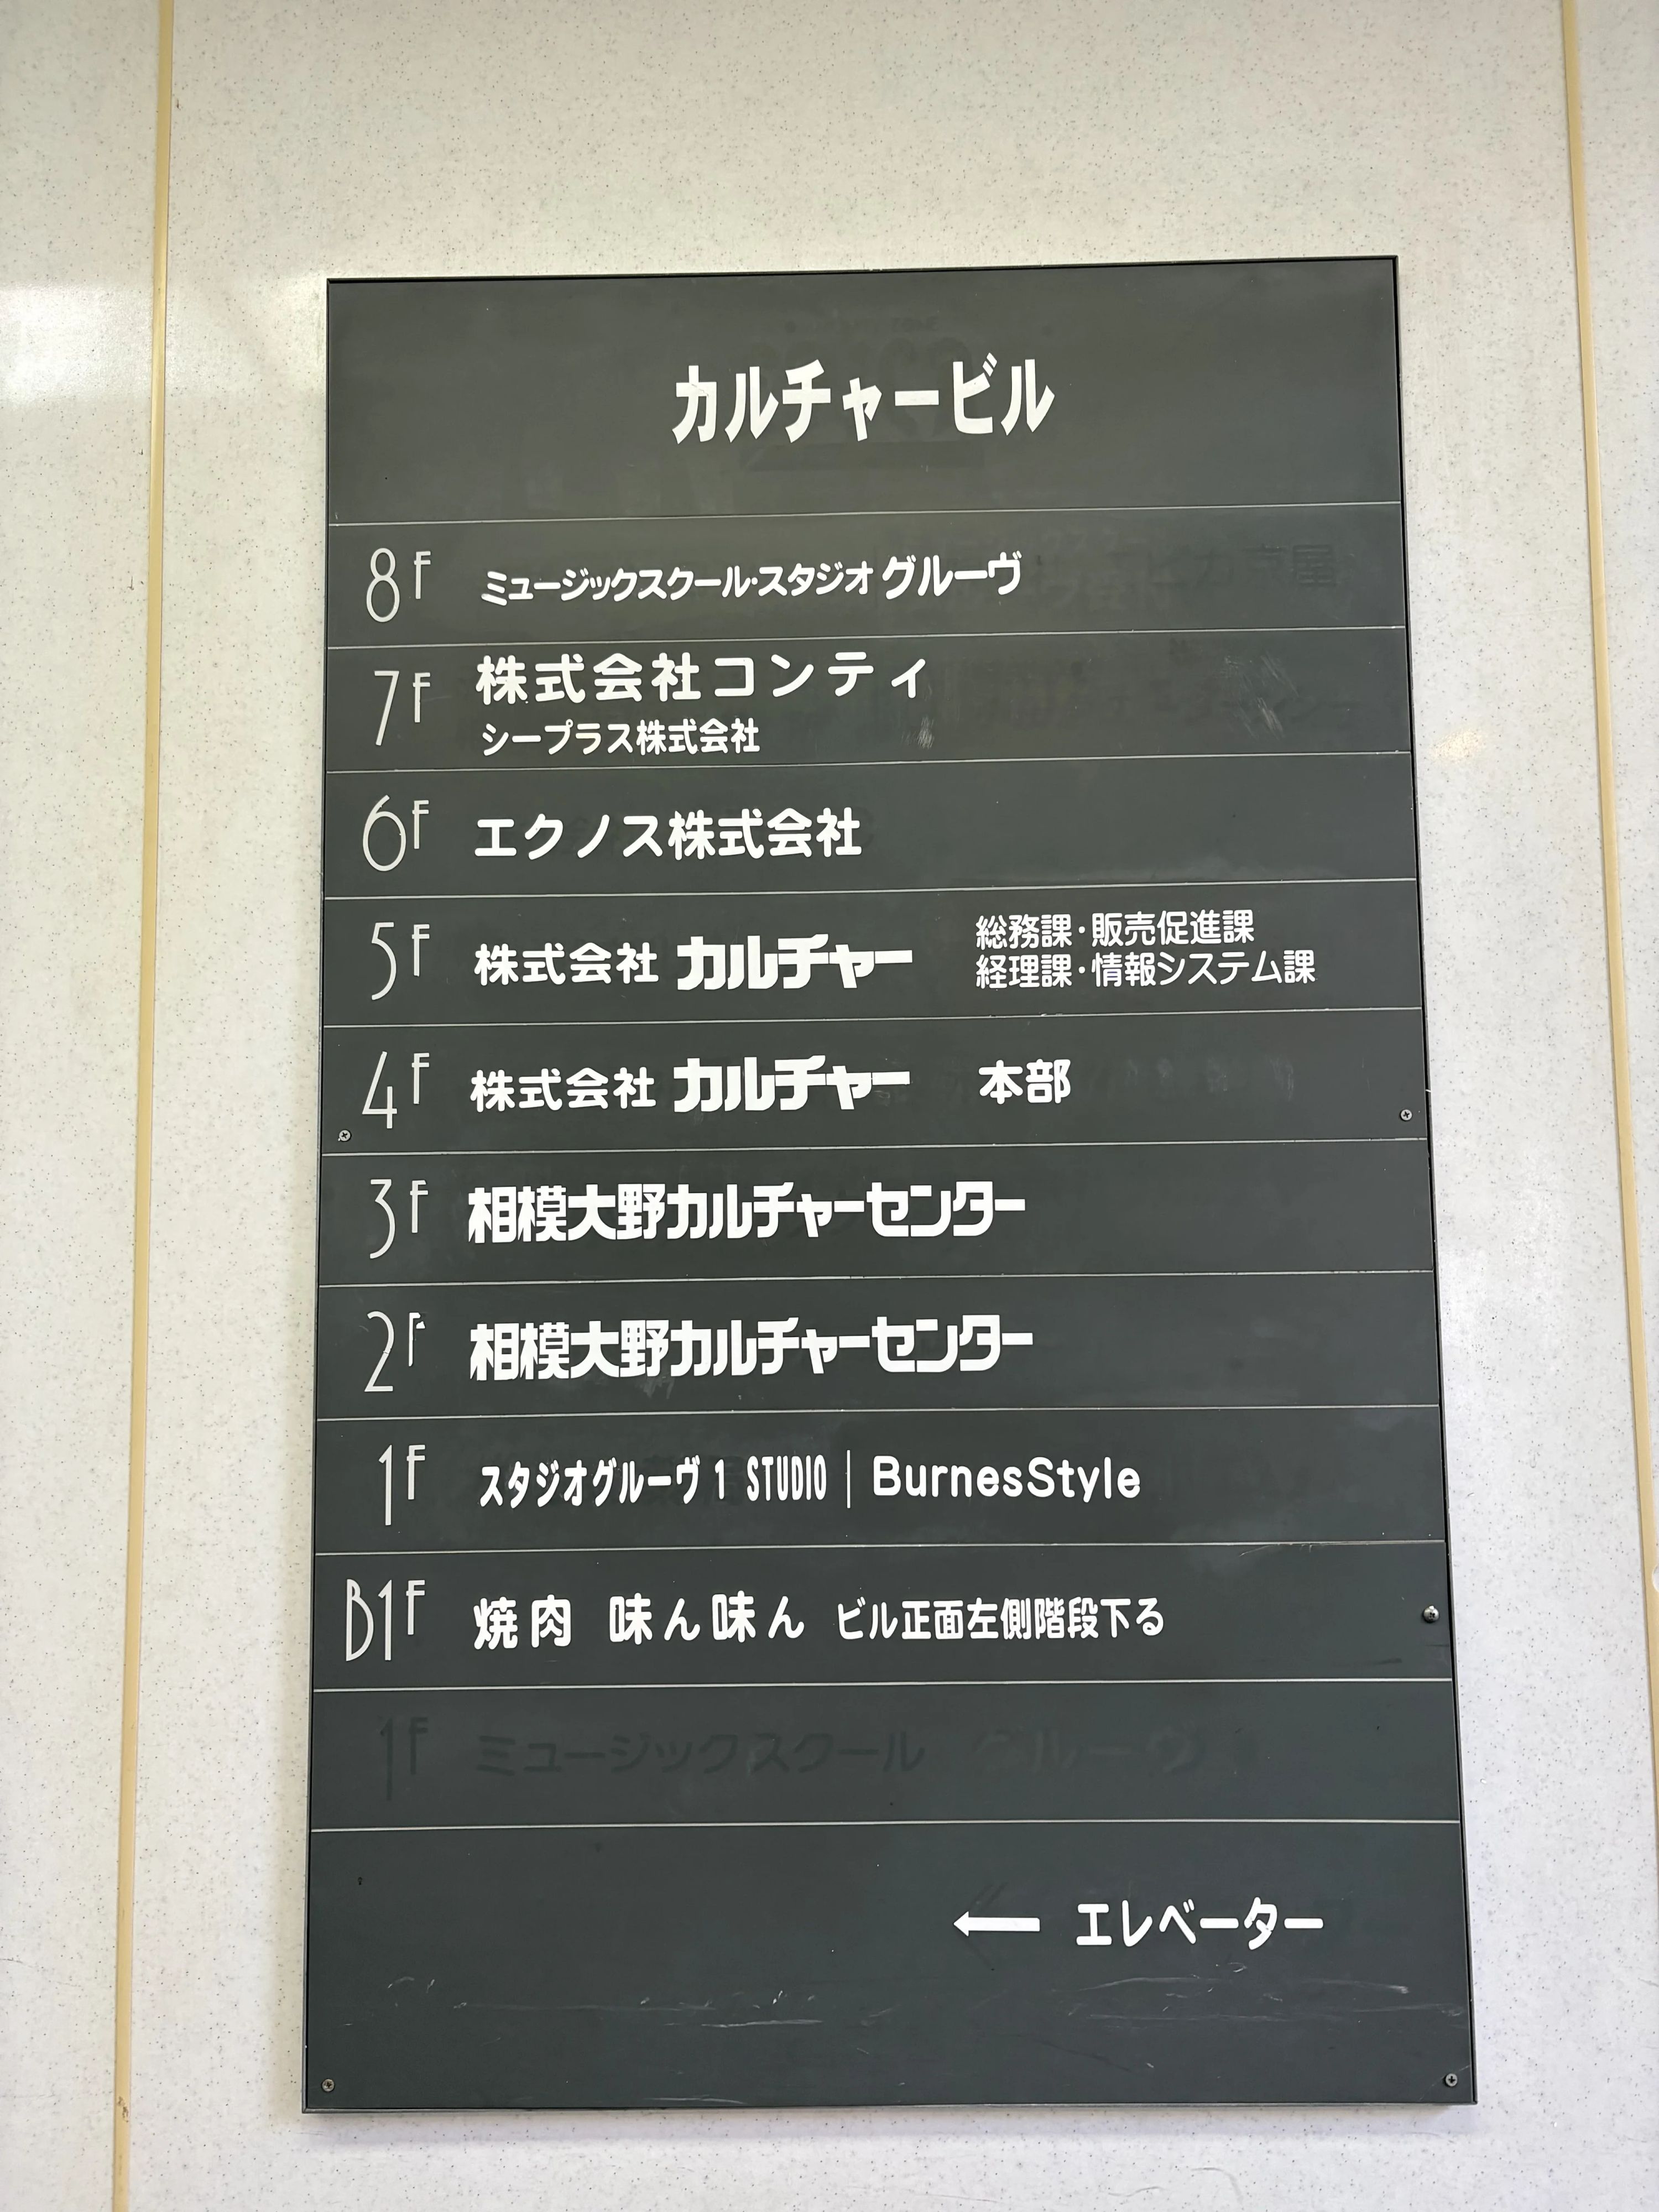 カルチャービル
8F ミュージックスクール・スタジオ グルーヴ
7F 株式会社コンティ
シープラス株式会社
6F エクノス株式会社
5F 株式会社 カルチャー 総務課・販売促進課
経理課・情報システム課
4F 株式会社 カルチャー 本部
3F 相模大野カルチャーセンター
2F 相模大野カルチャーセンター
1F スタジオグルーヴ 1 STUDIO | BurnesStyle
B1F 焼肉 味ん味ん ビル正面左側階段下る
1F ミュージックスクール グルーヴ
← エレベーター